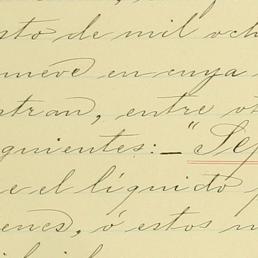 sto de mil och
nueve en cuya
stran, entre ot
guientes:—"Sep
e el líquido p
enes, ó estos n